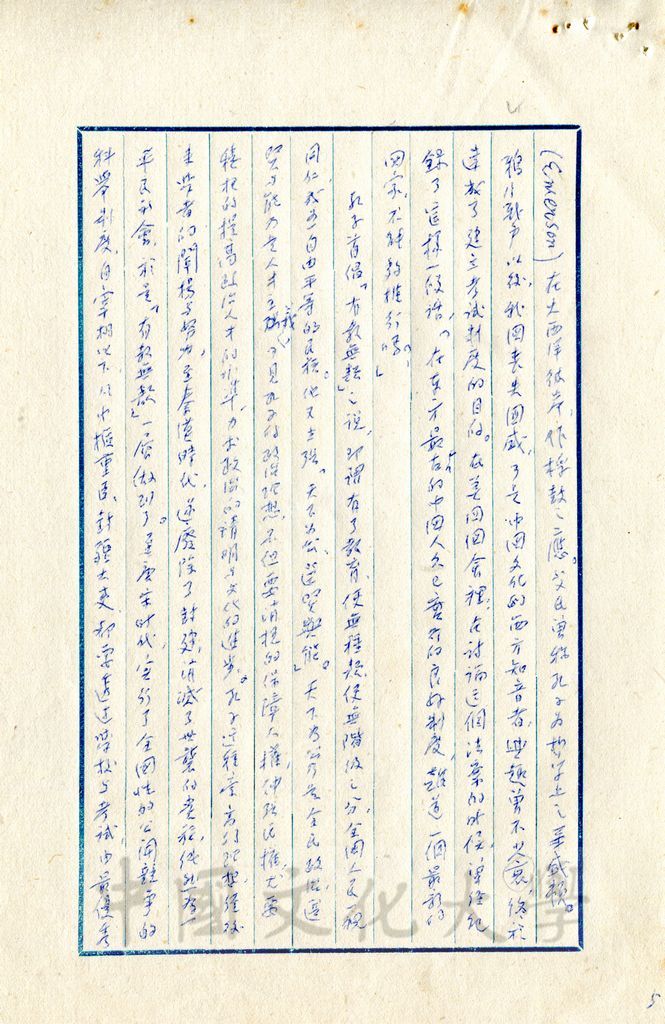 (Emerson)在大西洋彼岸,作桴鼓之應。艾氏曾稱孔子為哲學上之華盛頓。
鴉片戰爭以後,我國喪失國威,了是中國文化的西方知音者興趣曾不少衰,終於
達成了建立考試制度的目的。在美國國會裡,在討論這個法案的時候,曾經紀
錄了這樣一段話,「在東方最古的中國人久已實行的良好制度,難道一個最新的
國家,不能夠推行嗎?」
孔子首倡「有教無類」之說,即謂有了教育,便無種類,便無階級之分,全國人民一視
同仁,成為一自由平等的民族。他又主張「天下為公,選賢與能」。天下為公是全民政治,選
賢與能乃是人才主義,可見孔子的政治理想,不但要消極的保障人權,伸張民權,尤要
積極的提高政治人才的水準,力求政治的清明與文化的進步。孔子這種崇高的理想,經後
來學者的闡揚與努力,至秦漢時代,遂廢除了封建,消滅了世襲的貴族,代之為一
平民社會,於是「有教無類」一層做到了。至唐宋時代,實行了全國性的公開競爭的
科舉制度,自宰相以下,以中樞重臣,封疆大吏,都要透過學校與考試,由最優秀
5
中國文化大學